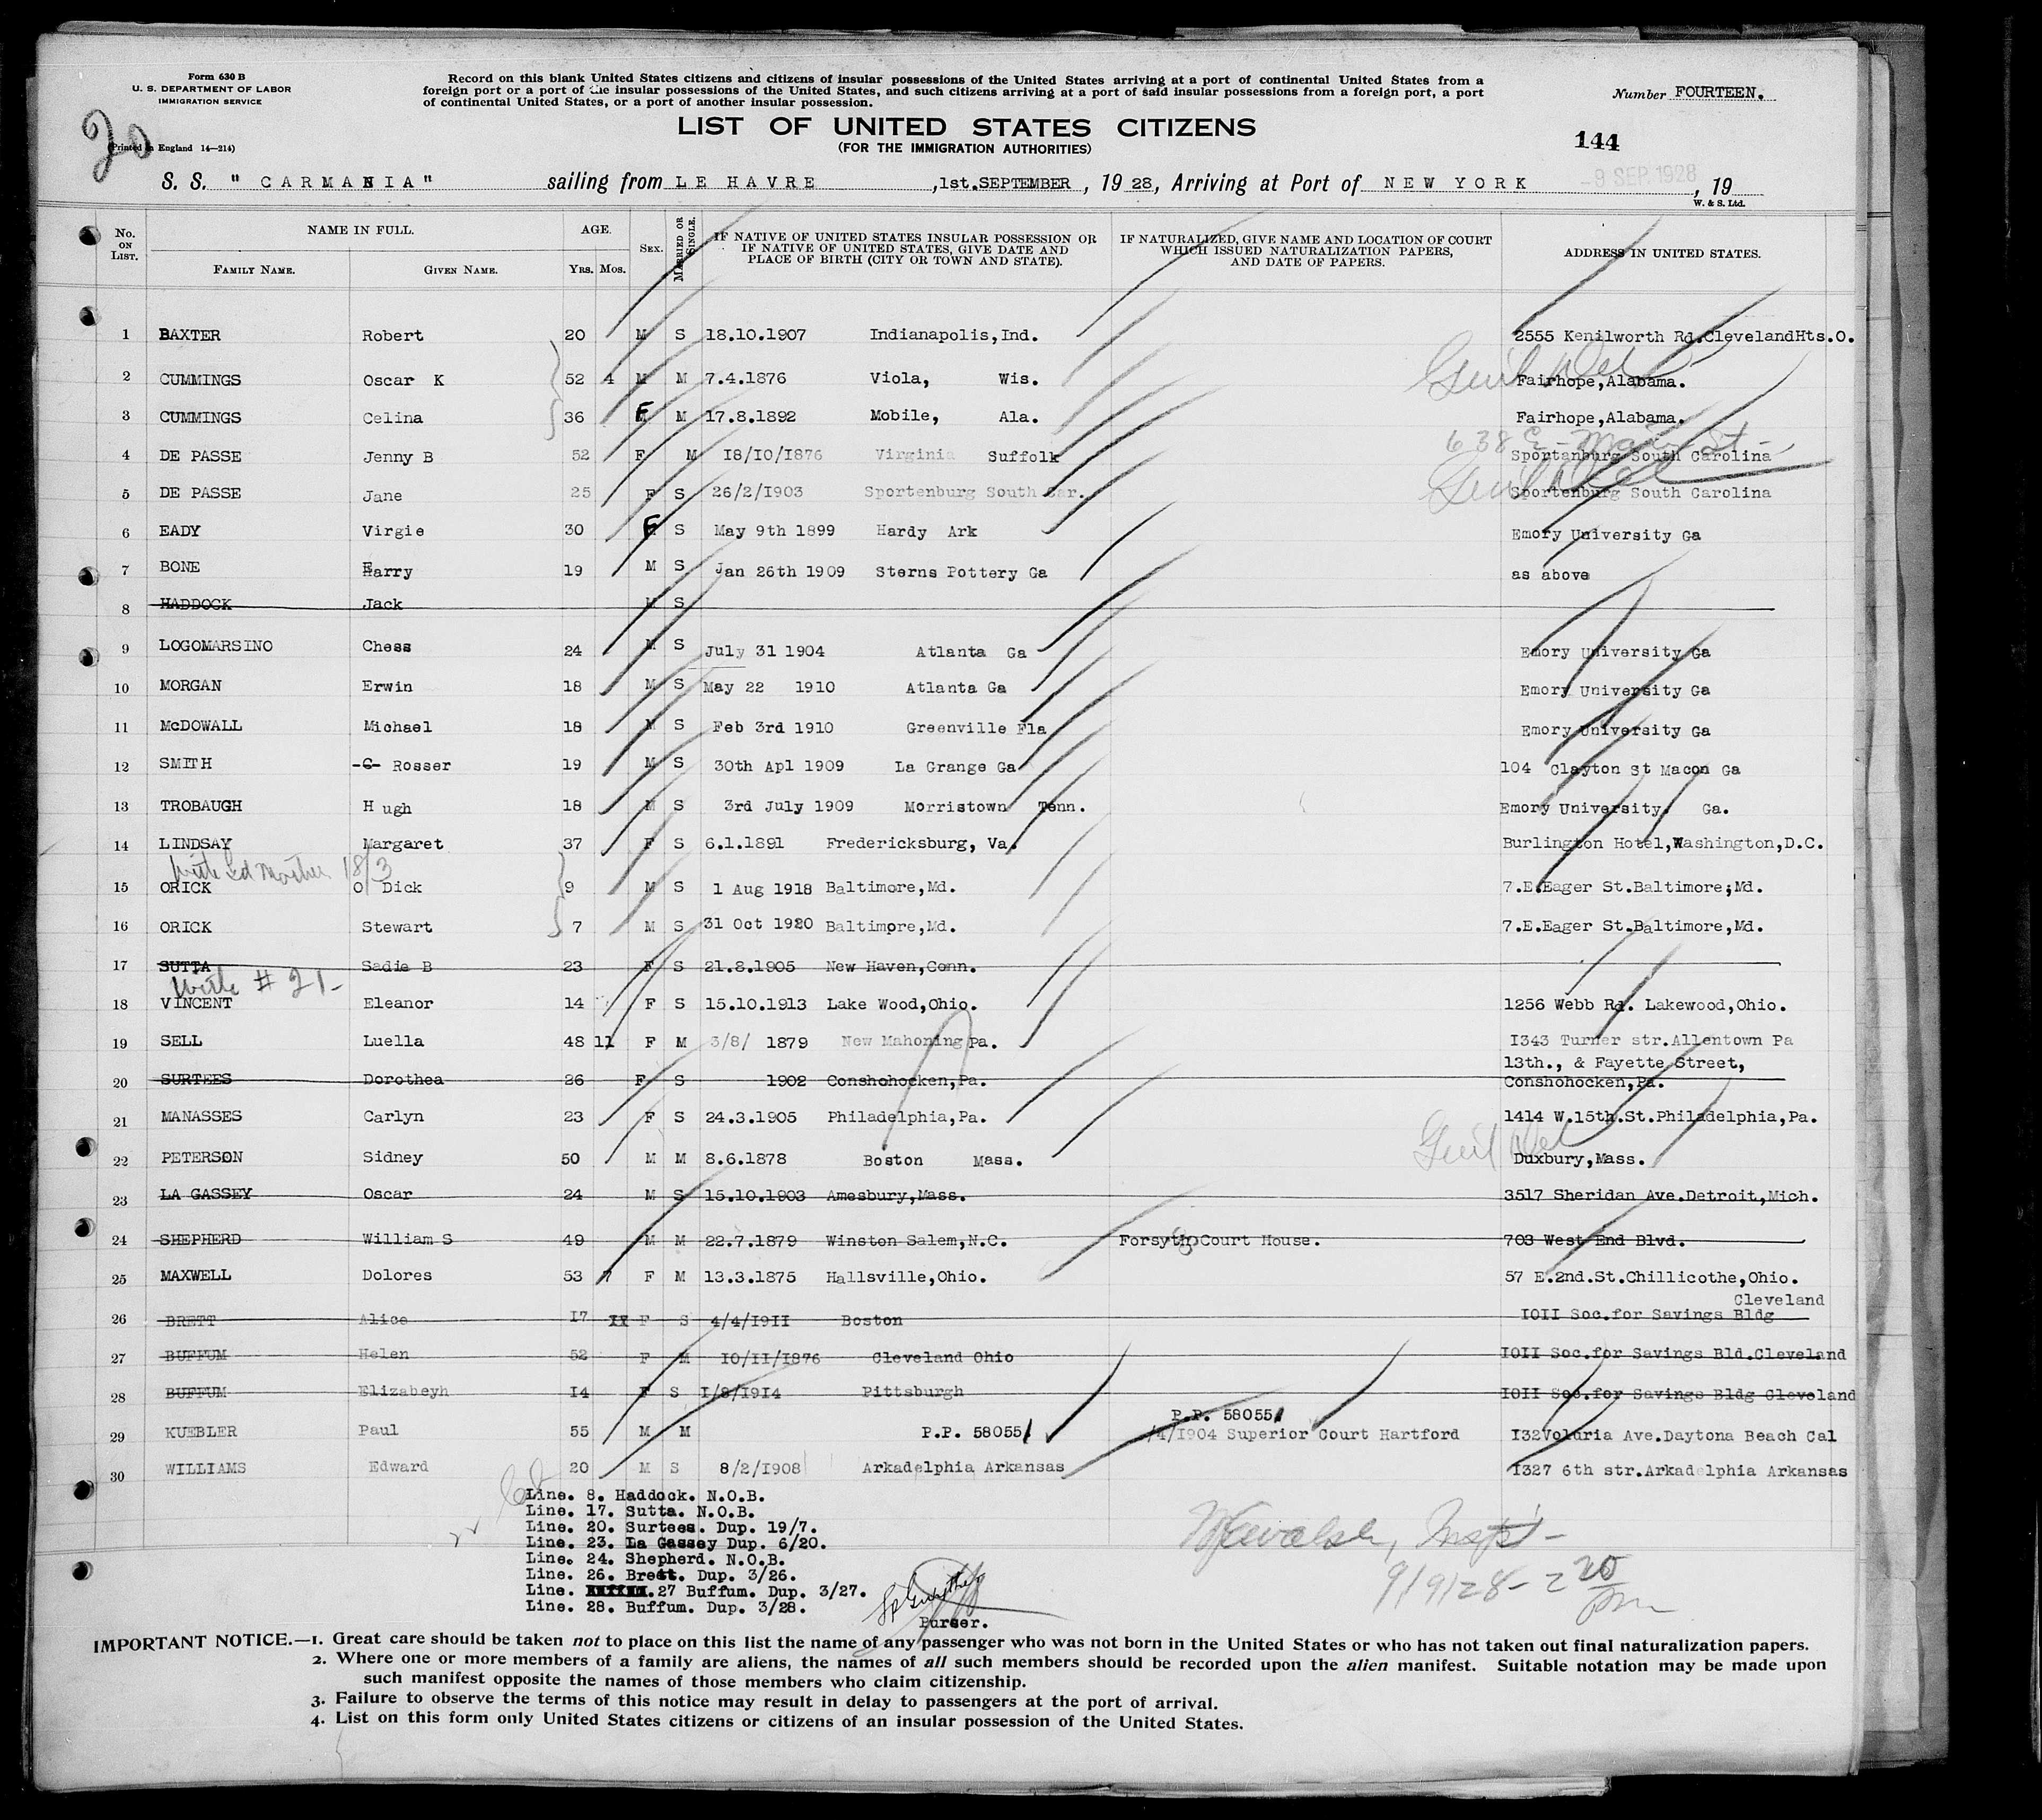 Form 630 B
U. S. DEPARTMENT OF LABOR
IMMIGRATION SERVICE
(Printed in England 14—214)
20
Record on this blank United States citizens and citizens of insular possessions of the United States arriving at a port of continental United States from a
foreign port or a port of the insular possessions of the United States, and such citizens arriving at a port of said insular possessions from a foreign port, a port
of continental United States, or a port of another insular possession.
Number FOURTEEN.
LIST OF UNITED STATES CITIZENS
(FOR THE IMMIGRATION AUTHORITIES)
144
S. S. "CARMANIA" sailing from LE HAVRE, 1st.SEPTEMBER, 1928, Arriving at Port of NEW YORK -9 SEP. 1928, 19
W. & S. Ltd.
No. ON LIST. NAME IN FULL. FAMILY NAME. GIVEN NAME. AGE. YRS. MOS. SEX. MARRIED OR SINGLE. IF NATIVE OF UNITED STATES INSULAR POSSESSION OR IF NATIVE OF UNITED STATES, GIVE DATE AND PLACE OF BIRTH (CITY OR TOWN AND STATE). IF NATURALIZED, GIVE NAME AND LOCATION OF COURT WHICH ISSUED NATURALIZATION PAPERS, AND DATE OF PAPERS. ADDRESS IN UNITED STATES.
1 BAXTER Robert 20 M S 18.10.1907 Indianapolis,Ind. 2555 Kenilworth Rd.ClevelandHts.O.
2 CUMMINGS Oscar K 52 4 M M 7.4.1876 Viola, Wis. Fairhope,Alabama.
3 CUMMINGS Celina 36 F M 17.8.1892 Mobile, Ala. Fairhope,Alabama.
638 E - Main St -
4 DE PASSE Jenny B 52 F M 18/10/1876 Virginia Suffolk Sportanburg South Carolina
5 DE PASSE Jane 25 F S 26/2/1903 Sportenburg South Car. Sportenburg South Carolina
6 EADY Virgie 30 F S May 9th 1899 Hardy Ark Emory University Ga
7 BONE Harry 19 M S Jan 26th 1909 Sterns Pottery Ga as above
8 HADDOCK Jack M S
9 LOGOMARSINO Chess 24 M S July 31 1904 Atlanta Ga Emory University Ga
10 MORGAN Erwin 18 M S May 22 1910 Atlanta Ga Emory University Ga
11 McDOWALL Michael 18 M S Feb 3rd 1910 Greenville Fla Emory University Ga
12 SMITH -C- Rosser 19 M S 30th Apl 1909 La Grange Ga 104 Clayton St Macon Ga
13 TROBAUGH Hugh 18 M S 3rd July 1909 Morristown Tenn. Emory University, Ga.
14 LINDSAY Margaret 37 F S 6.1.1891 Fredericksburg, Va. Burlington Hotel,Washington,D.C.
18/3
15 ORICK O Dick 9 M S 1 Aug 1918 Baltimore,Md. 7.E.Eager St.Baltimore;Md.
16 ORICK Stewart 7 M S 31 Oct 1920 Baltimore,Md. 7.E.Eager St.Baltimore,Md.
17 SUTTA Sadie B 23 F S 21.8.1905 New Haven,Conn.
with # 21-
18 VINCENT Eleanor 14 F S 15.10.1913 Lake Wood,Ohio. 1256 Webb Rd. Lakewood,Ohio.
19 SELL Luella 48 11 F M 3/8/ 1879 New Mahoning Pa. 1343 Turner str.Allentown Pa
20 SURTEES Dorothea 26 F S 1902 Conshohocken,Pa. 13th., & Fayette Street, Conshohocken,Pa.
21 MANASSES Carlyn 23 F S 24.3.1905 Philadelphia,Pa. 1414 W.15th.St.Philadelphia,Pa.
22 PETERSON Sidney 50 M M 8.6.1878 Boston Mass. Duxbury,Mass.
23 LA GASSEY Oscar 24 M S 15.10.1903 Amesbury,Mass. 3517 Sheridan Ave.Detroit,Mich.
24 SHEPHERD William S 49 M M 22.7.1879 Winston Salem,N.C. Forsyth Court House. 703 West End Blvd.
25 MAXWELL Dolores 53 7 F M 13.3.1875 Hallsville,Ohio. 57 E.2nd.St.Chillicothe,Ohio.
26 BRETT Alice 17 F S 4/4/1911 Boston 1011 Soc.for Savings Bldg Cleveland
27 BUFFUM Helen 52 F M 10/11/1876 Cleveland Ohio 1011 Soc.for Savings Bld.Cleveland
28 BUFFUM Elizabeyh 14 F S 1/8/1914 Pittsburgh 1011 Soc.for Savings Bldg Cleveland
P.P. 58055
29 KUEBLER Paul 55 M M P.P. 58055 /4/1904 Superior Court Hartford 132Voluria Ave.Daytona Beach Cal
30 WILLIAMS Edward 20 M S 8/2/1908 Arkadelphia Arkansas 1327 6th str.Arkadelphia Arkansas
Line. 8. Haddock. N.O.B.
Line. 17. Sutta. N.O.B.
Line. 20. Surtees. Dup. 19/7.
Line. 23. La Gassey Dup. 6/20.
Line. 24. Shepherd. N.O.B.
Line. 26. Brett. Dup. 3/26.
Line. 27 Buffum. Dup. 3/27.
Line. 28. Buffum. Dup. 3/28.
Purser.
9/9/28 - 2 20 pm
IMPORTANT NOTICE.—1. Great care should be taken not to place on this list the name of any passenger who was not born in the United States or who has not taken out final naturalization papers.
2. Where one or more members of a family are aliens, the names of all such members should be recorded upon the alien manifest. Suitable notation may be made upon
such manifest opposite the names of those members who claim citizenship.
3. Failure to observe the terms of this notice may result in delay to passengers at the port of arrival.
4. List on this form only United States citizens or citizens of an insular possession of the United States.